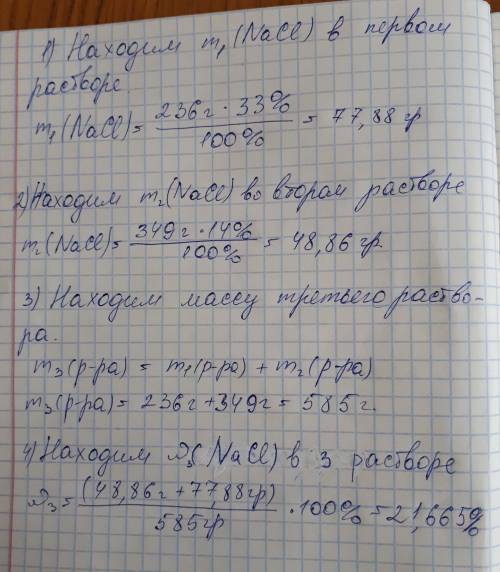 1) Находим m₁(NaCl) в первом
растворе.
m₁(NaCl) = 236г · 33% / 100% = 77,88 гр
2) Находим m₂(NaCl) во втором растворе
m₂(NaCl) = 349г · 14% / 100% = 48,86 гр.
3) Находим массу третьего раство-
ра.
m₃(р-ра) = m₁(р-ра) + m₂(р-ра)
m₃(р-ра) = 236г + 349г = 585г.
4) Находим ω₃(NaCl) в 3 растворе
ω₃ = (48,86г + 77,88гр) / 585гр · 100% = 21,665%